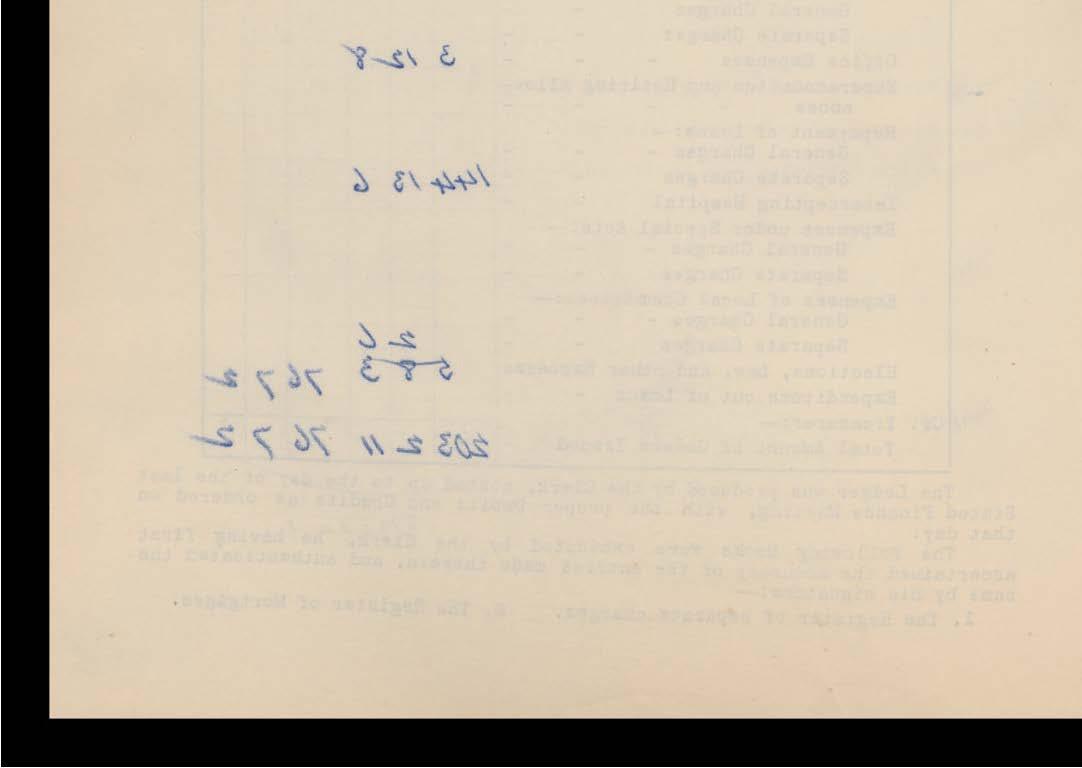 General Charges - -
Separate Charges - -
Office Expenses - - - 3 12 8
Superannuation and Retiring Allow-
ances - - - -
Repayment of Loans:—
General Charges - - -
Separate Charges - - 144 13 6
Intercepting Hospital - -
Expenses under Special Acts:—
General Charges - - -
Separate Charges - -
Expenses of Local Committees:—
General Charges - - -
Separate Charges - - 2 6
Elections, Law, and other Expenses 5 8 3 76 7 2
Expenditure out of Loans - -
Treasurer:—
Total Amount of Orders Issued 203 2 11 76 7 2
The Ledger was produced by the Clerk, posted up to the day of the last
Stated Finance Meeting, with the proper Debits and Credits as ordered on
that day.
The following Books were examined by the Clerk, he having first
ascertained the accuracy of the entries made therein, and authenticated the
same by his signature:—
1. The Register of separate charges. The Register of Mortgages.